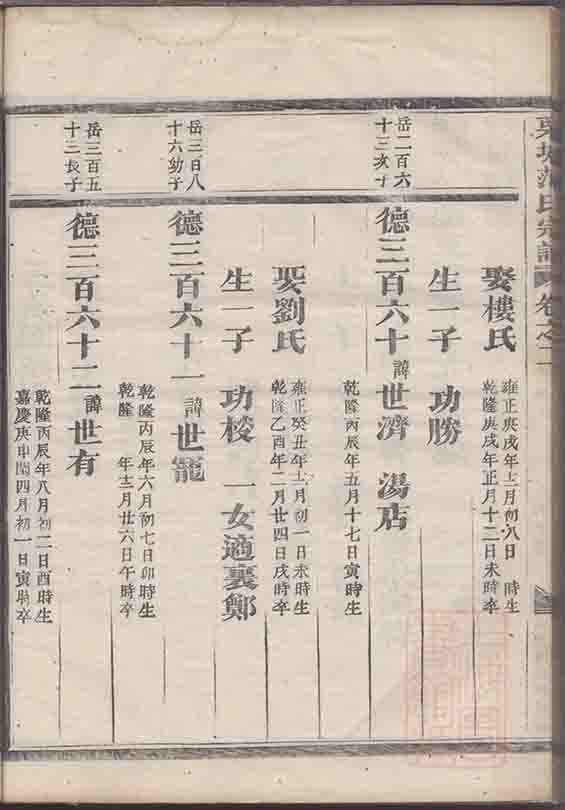 氏宗譜 卷之二
娶樓氏
雍正庚戌年十二月初八日 時生
乾隆庚戌年正月十二日未時卒
生一子 功勝
岳二百六
十三亥子
德三百六十 諱世濟 湯店
乾隆丙辰年五月十七日寅時卒
娶劉氏
雍正癸丑年十一月初一日未時生
乾隆乙酉年二月廿四日戌時卒
生一子 功梭 一女適裏鄭
岳三百八
十六幼子
德三百六十一 諱世寵
乾隆丙辰年六月初七日卯時生
乾隆 年十二月廿六日午時卒
岳三百五
十三長子
德三百六十二 諱世有
乾隆丙辰年八月初二日酉時生
嘉慶庚申閏四月初一日寅時卒